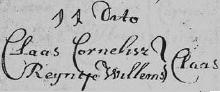 11 Dito
Claas Cornelisz
Reyntje Willems } Claas